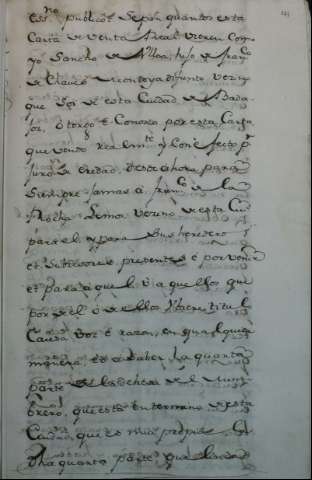 ess.no publico Sepan quantos esta
Carta de venta Real vieren Como
yo Sancho de Ulloa, hijo de fran.co
de Chaves de montoya difunto Vecino
que soy de esta Ciudad de Bada
joz, otorgo e Conozco por esta Carta
que vendo realm.te y Con efecto p.r
juro de eredad, desde ahora para
Siempre jamas a fran.co de la
Rocha Vecino de esta Ciu
para el y para sus herederos
et subcesores presentes e por venir
et para aquel via quellos que
por del o de ellos titul
Causa voz e razon, en qualquiera
manera, es a saber la quarta
parte de la dehesa del
brero, que es en termino de esta
Ciudad, que es mia propia, la
dha quarta parte qual